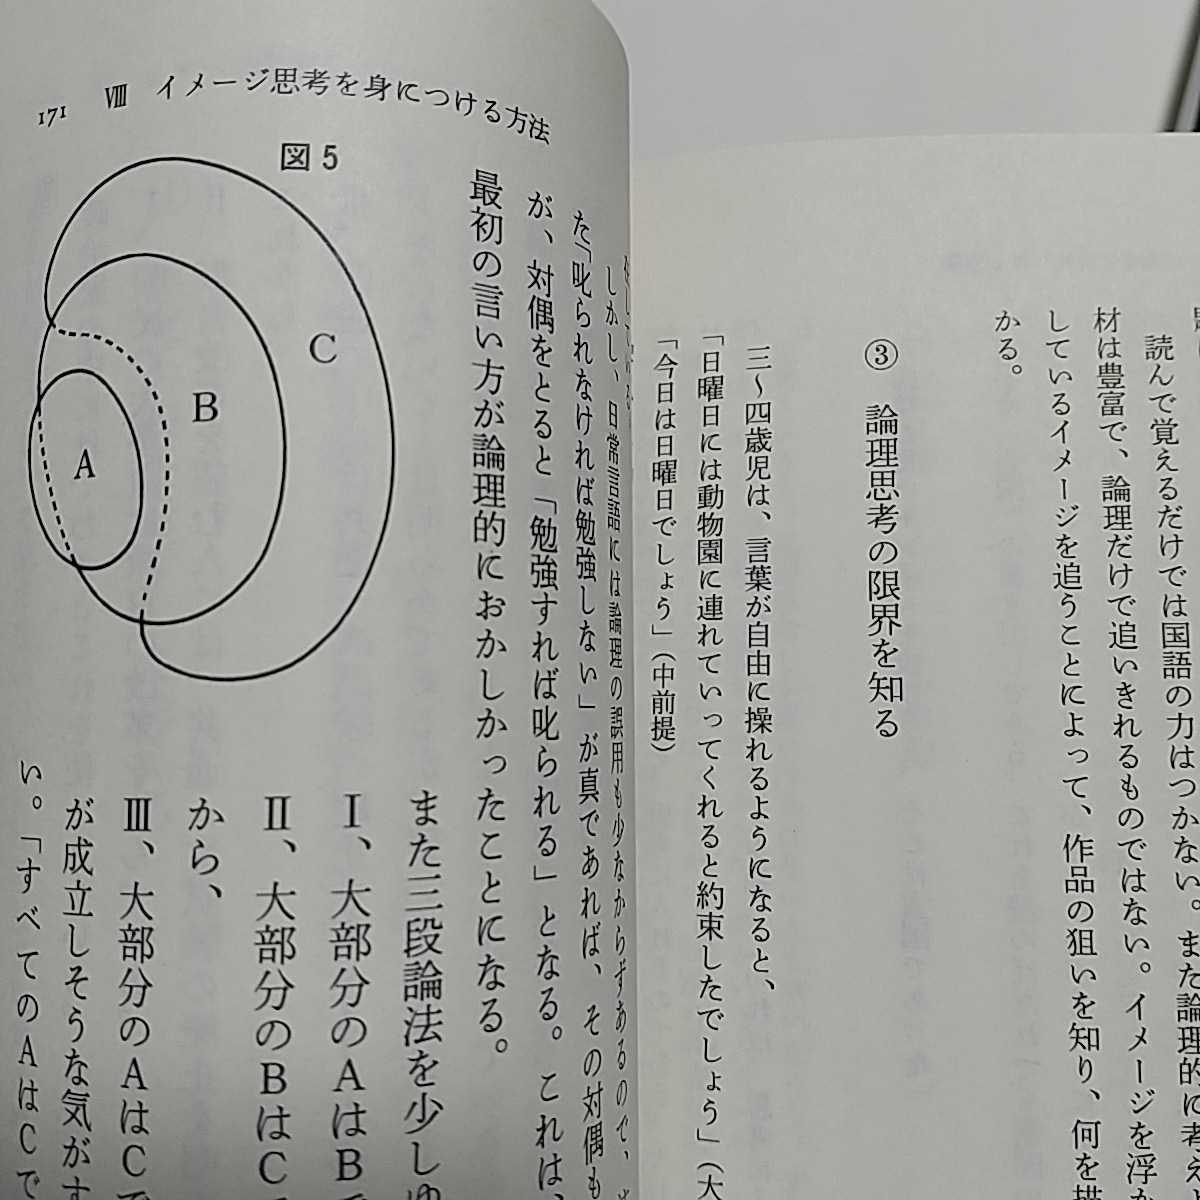 読んで覚えるだけでは国語の力はつかない。また論理的に考え
材は豊富で、論理だけで追いきれるものではない。イメージを浮か
しているイメージを追うことによって、作品の狙いを知り、何を描
かる。
③ 論理思考の限界を知る
三〜四歳児は、言葉が自由に操れるようになると、
「日曜日には動物園に連れていってくれると約束したでしょう」（大
「今日は日曜日でしょう」（中前提）
171 Ⅷ イメージ思考を身につける方法
しかし、日常言語には論理の誤用も少なからずあるので、
た「叱られなければ勉強しない」が真であれば、その対偶も
が、対偶をとると「勉強すれば叱られる」となる。これは、
最初の言い方が論理的におかしかったことになる。
図5
A
B
C
また三段論法を少しゆ
Ⅰ、大部分のAはBで
Ⅱ、大部分のBはCで
から、
Ⅲ、大部分のAはCで
が成立しそうな気がす
い。「すべてのAはCで